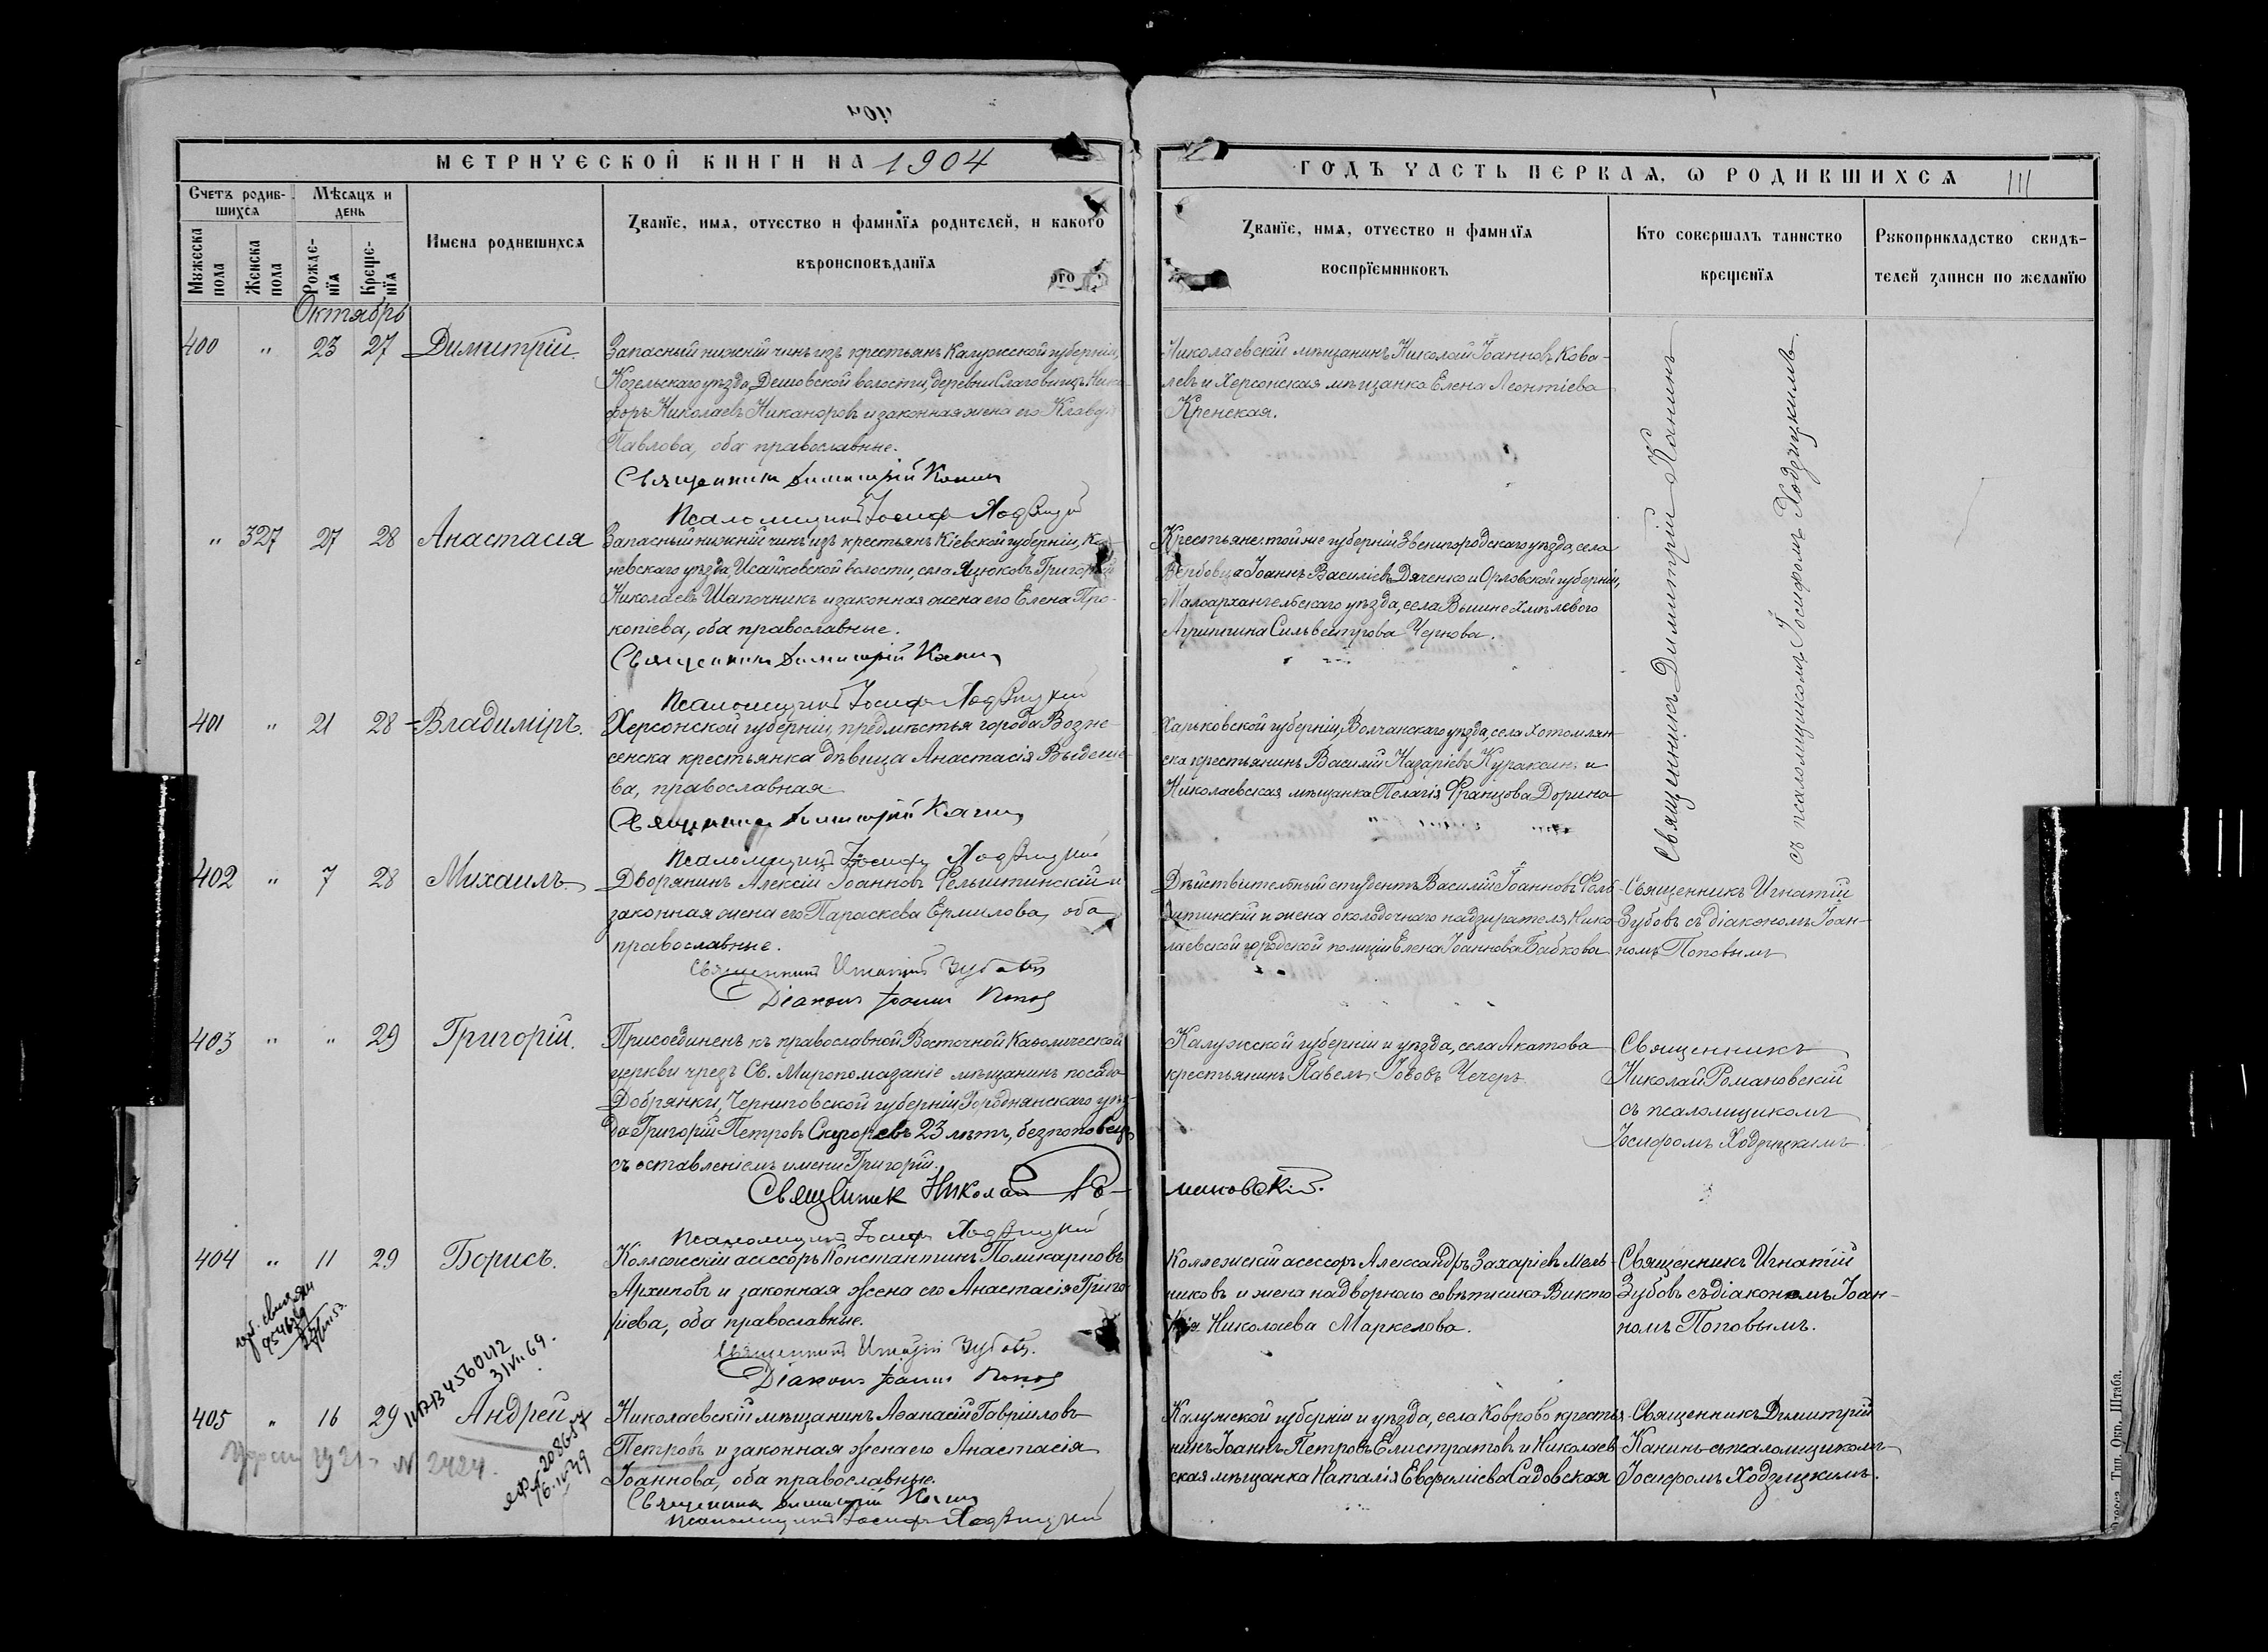 МЕТРИЧЕСКОЙ КНИГИ НА 1904
ГОДЪ ЧАСТЬ ПЕРВАЯ, Ѡ РОДИВШИХСЯ 111
Счетъ родив-
шихся
Мѣсяцъ и
день
Мужеска
пола
Женска
пола
Рожде-
нїя
Креще-
нїя
Имена родившихся
Званїе, имя, отчество и фамилїя родителей, и какого
вѣроисповѣданїя
Званїе, имя, отчество и фамилїя
воспрїемниковъ
Кто совершалъ таинство
крещенїя
Рукоприкладство свидѣ-
телей записи по желанїю
Октябрь
400 " 23 27 Димитрій.
Запасный нижній чинъ изъ крестьянъ Калужской губерніи,
Козельскаго уѣзда, Дешовской волости, деревни Слаговищъ Ники-
форъ Николаевъ Никаноровъ и законная жена его Клавдія
Павлова, оба православные.
Священникъ Димитрій Канинъ
Псаломщикъ Іосифъ Ходзицкій
Николаевскій мѣщанинъ Николай Іоанновъ Кова-
левъ и Херсонская мѣщанка Елена Леонтіева
Кренская.
Священникъ Димитрій Канинъ
съ псаломщикомъ Іосифомъ Ходзицкимъ.
" 327 27 28 Анастасія
Запасный нижній чинъ изъ крестьянъ Кіевской губерніи, Ка-
невскаго уѣзда, Исайковской волости, села Яцюковъ Григорій
Николаевъ Шапочникъ и законная жена его Елена Про-
копіева, оба православные.
Священникъ Димитрій Канинъ
Псаломщикъ Іосифъ Ходзицкій
Крестьяне: той же губерніи Звенигородскаго уѣзда, села
Вербовца Іоаннъ Василіевъ Дяченко и Орловской губерніи,
Малоархангельскаго уѣзда, села Вышне Хмѣлевого
Агриппина Сильвестрова Чернова.
401 " 21 28 Владиміръ.
Херсонской губерніи, предмѣстья города Возне-
сенска крестьянка дѣвица Анастасія
ва, православная
Священникъ Димитрій Канинъ
Псаломщикъ Іосифъ Ходзицкій
Харьковской губерніи, Волчанскаго уѣзда, села Хотомлян-
ска крестьянинъ Василій Назаріевъ Куракинъ и
Николаевская мѣщанка Пелагія Францова Дорина
402 " 7 28 Михаилъ.
Дворянинъ Алексій Іоанновъ Фельштинскій и
законная жена его Параскева Ермилова, оба
православные.
Священникъ Игнатій Зубовъ
Діаконъ Іоаннъ Поповъ
Дѣйствительный студентъ Василій Іоанновъ Фель-
штинскій и жена околодочнаго надзирателя Нико-
лаевской городской полиціи Елена Іоаннова Бабкова
Священникъ Игнатій
Зубовъ съ діакономъ Іоан-
номъ Поповымъ
403 " " 29 Григорій.
Присоединенъ къ православной Восточной Каѳолической
церкви чрезъ Св. Миропомазаніе мѣщанинъ посада
Добрянки, Черниговской губерніи Городнянскаго уѣз-
да Григорій Петровъ Скугоревъ 23 лѣтъ, безпоповецъ
съ оставленіемъ имени Григорій.
Священникъ Николай Ро-
мановскій.
Псаломщикъ Іосифъ Ходзицкій
Калужской губерніи и уѣзда, села Акатова
крестьянинъ Павелъ Іововъ Чечеръ
Священникъ
Николай Романовскій
съ псаломщикомъ
Іосифомъ Ходзицкимъ.
404 " 11 29 Борисъ.
Коллежскій асессоръ Константинъ Поликарповъ
Архиповъ и законная жена его Анастасія Григо-
ріева, оба православные.
Священникъ Игнатій Зубовъ.
Діаконъ Іоаннъ Поповъ
Коллежскій асессоръ Александръ Захаріевъ Мель-
никовъ и жена надворнаго совѣтника Викто-
рія Николаева Маркелова.
Священникъ Игнатій
Зубовъ съ діакономъ Іоан-
номъ Поповымъ.
405 " 16 29 Андрей
Николаевскій мѣщанинъ Аѳанасій Гавріиловъ
Петровъ и законная жена его Анастасія
Іоаннова, оба православные.
Священникъ Димитрій Канинъ
Псаломщикъ Іосифъ Ходзицкій
Калужской губерніи и уѣзда, села Коврово крестья-
нинъ Іоаннъ Петровъ Елистратовъ и Николаев-
ская мѣщанка Наталія Евфиміева Садовская
Священникъ Димитрій
Канинъ съ псаломщикомъ
Іосифомъ Ходзицкимъ.
1921 № 2424.
Одесса. Тип. Окр. Штаба.